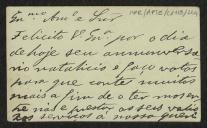 Exmo Amo e Snr
Felicito V. Exa. por o dia
de hoje seu anniversa-
rio natalicio e faço votos
para que conte muitos
mais a fim de o ter
e prestar os seus vali-
serviços á nossa